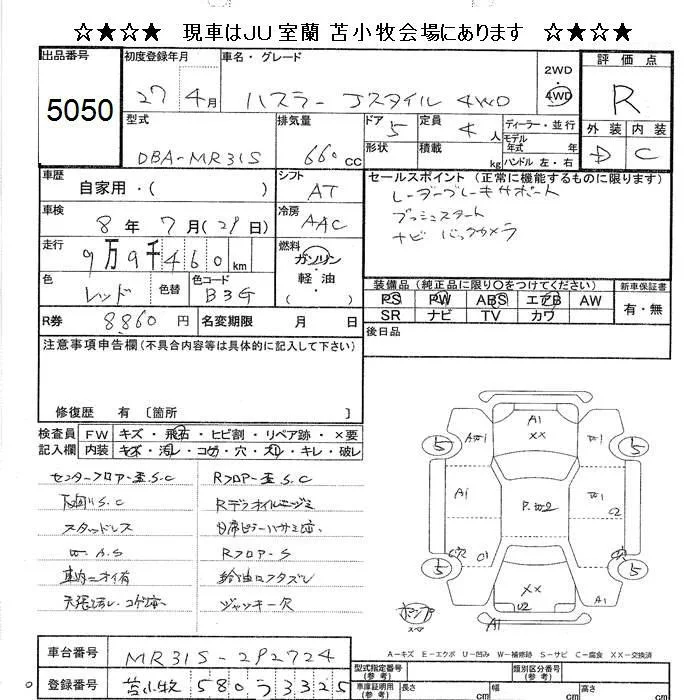 ☆★☆★ 現車はJU室蘭 苫小牧会場にあります ☆★☆★
出品番号
5050
初度登録年月
27 4月
車名・グレード
ハスラー Jスタイル 4WD
2WD
4WD
評価点
R
外装 内装
D C
型式
DBA-MR31S
排気量
660 cc
ドア 5
形状
定員 4 人
積載 kg
ディーラー・並行
モデル年式 年
ハンドル 左・右
車歴
自家用・( )
シフト
AT
セールスポイント (正常に機能するものに限ります)
レーダーブレーキサポート
プッシュスタート
ナビ バックカメラ
車検
8年 7月(29日)
冷房
AAC
走行
9万9千460 km
燃料
ガソリン・
軽油
( )
色
レッド
色替
色コード
B3G
装備品 (純正品に限り○をつけてください)
PS PW ABS エアB AW
SR ナビ TV カワ
新車保証書
有・無
R券 8860円
名変期限 月 日
後日品
注意事項申告欄(不具合内容等は具体的に記入して下さい)
修復歴 有 〔箇所 〕
検査員記入欄
FW キズ・飛石・ヒビ割・リペア跡・×要
内装 キズ・汚レ・コゲ・穴・スレ・キレ・破レ
センターフロアー歪S.C
Rフロアー歪S.C
下廻りS.C
スタッドレス
W.A.S
Rフロアー S
車内ニオイ有
給油口フタズレ
天張汚レ・コゲ
ジャッキ欠
A1
XX
W1
5
5
A1
P.W2
W1
C2
穴
C1
5
5
XX
U2
W1
A1
A-キズ E-エクボ U-凹み W-補修跡 S-サビ C-腐食 XX-交換済
車台番号
MR31S-292724
登録番号
苫小牧 580 う 3325
型式指定番号(参考)
類別区分番号(参考)
車庫証明用(参考)
長さ cm
幅 cm
高さ cm